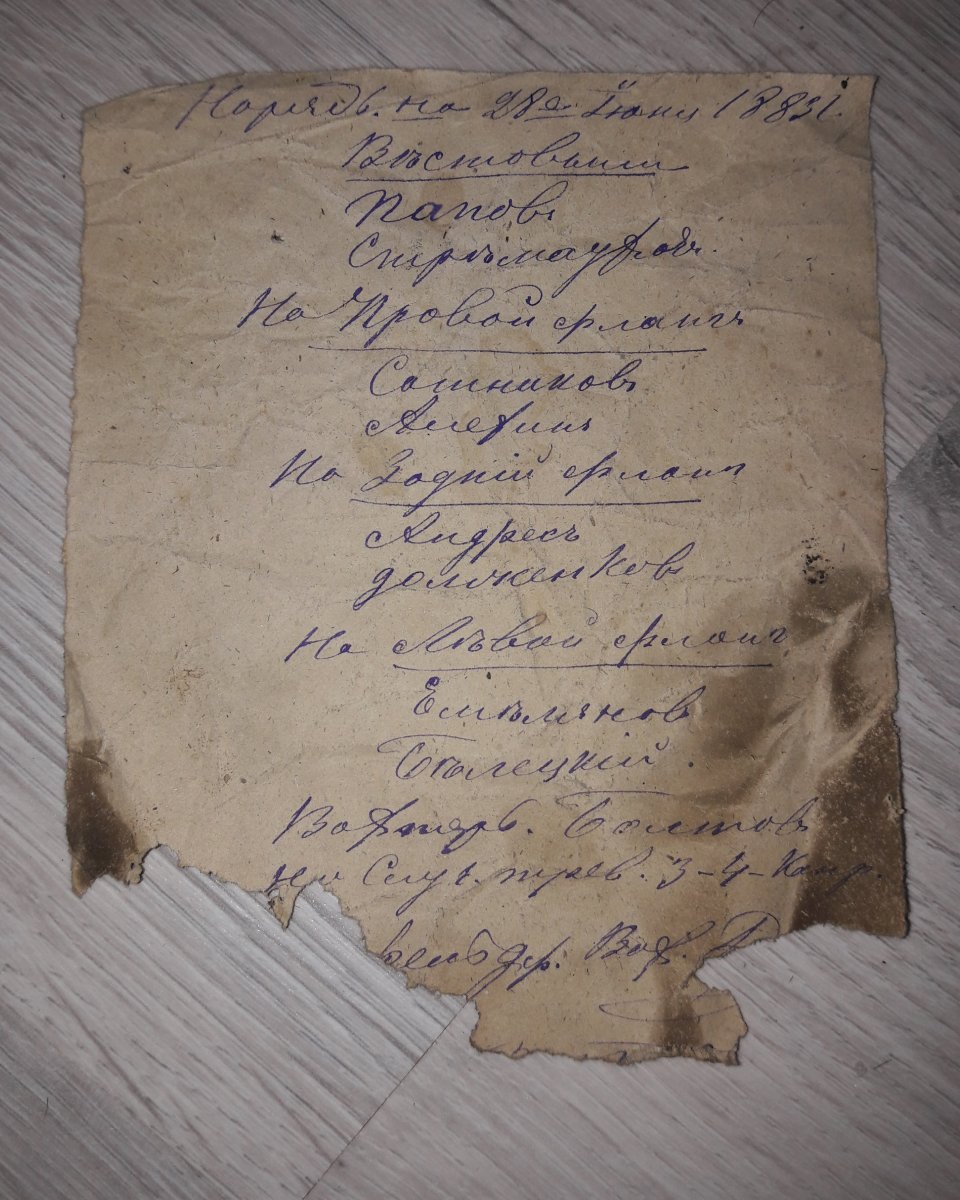 Нарядъ. на 28е Іюня 1883г.
Вѣстовыми
Паповъ
На Правой флангъ
Сотниковъ
Алехинъ
На Задній флангъ
Андресъ
долженковъ
На Лѣвой флангъ
Емельяновъ
Бѣлецкій.
Вахтеръ. Болтовъ
на Случ. трев. 3-4-Капр.
Вах.